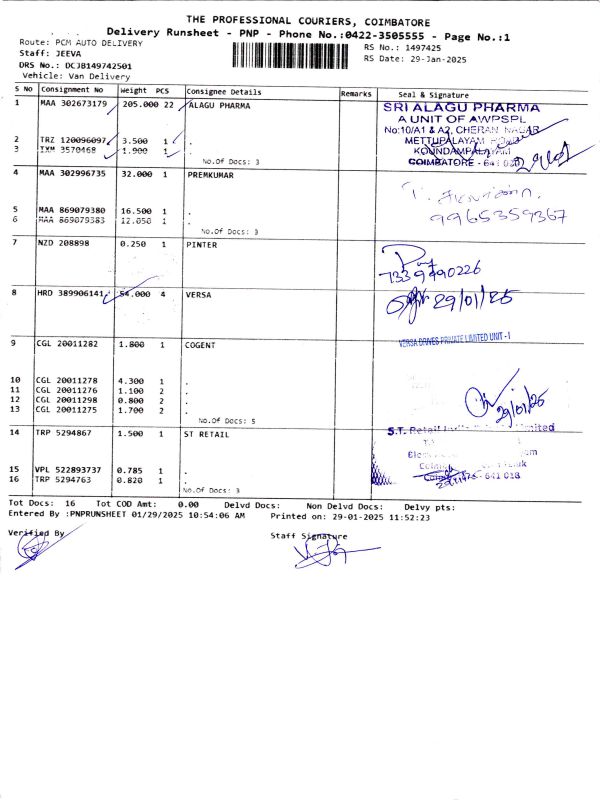 THE PROFESSIONAL COURIERS, COIMBATORE
Delivery Runsheet - PNP - Phone No.:0422-3505555 - Page No.:1
Route: PCM AUTO DELIVERY
RS No.: 1497425
Staff: JEEVA
RS Date: 29-Jan-2025
DRS No.: DCJB149742501
Vehicle: Van Delivery
S No Consignment No Weight PCS Consignee Details Remarks Seal & Signature
1 MAA 302673179 205.000 22 ALAGU PHARMA
SRI ALAGU PHARMA
A UNIT OF AWPSPL
No:10/A1 & A2, CHERAN NAGAR
METTUPALAYAM ROAD
KOUNDAMPALAYAM
COIMBATORE - 641
2 TRZ 120096097 3.500 1 .
3 3570468 1.900 1 .
No.Of Docs: 3
4 MAA 302996735 32.000 1 PREMKUMAR
9965359367
5 MAA 869079380 16.500 1 .
6 MAA 869079383 12.050 1 .
No.Of Docs: 3
7 NZD 208898 0.250 1 PINTER
7339490226
8 HRD 389906141 54.000 4 VERSA
29/01/25
VERSA DRIVES PRIVATE LIMITED UNIT -1
9 CGL 20011282 1.800 1 COGENT
10 CGL 20011278 4.300 1 .
11 CGL 20011276 1.100 2 .
12 CGL 20011298 0.800 2 .
13 CGL 20011275 1.700 2 .
No.Of Docs: 5
29/01/25
14 TRP 5294867 1.500 1 ST RETAIL
S.T. Retail Limited
15 VPL 522893737 0.785 1 .
16 TRP 5294763 0.820 1 .
No.Of Docs: 3
Tot Docs: 16 Tot COD Amt: 0.00 Delvd Docs: Non Delvd Docs: Delvy pts:
Entered By :PNPRUNSHEET 01/29/2025 10:54:06 AM Printed on: 29-01-2025 11:52:23
Verified By
Staff Signature